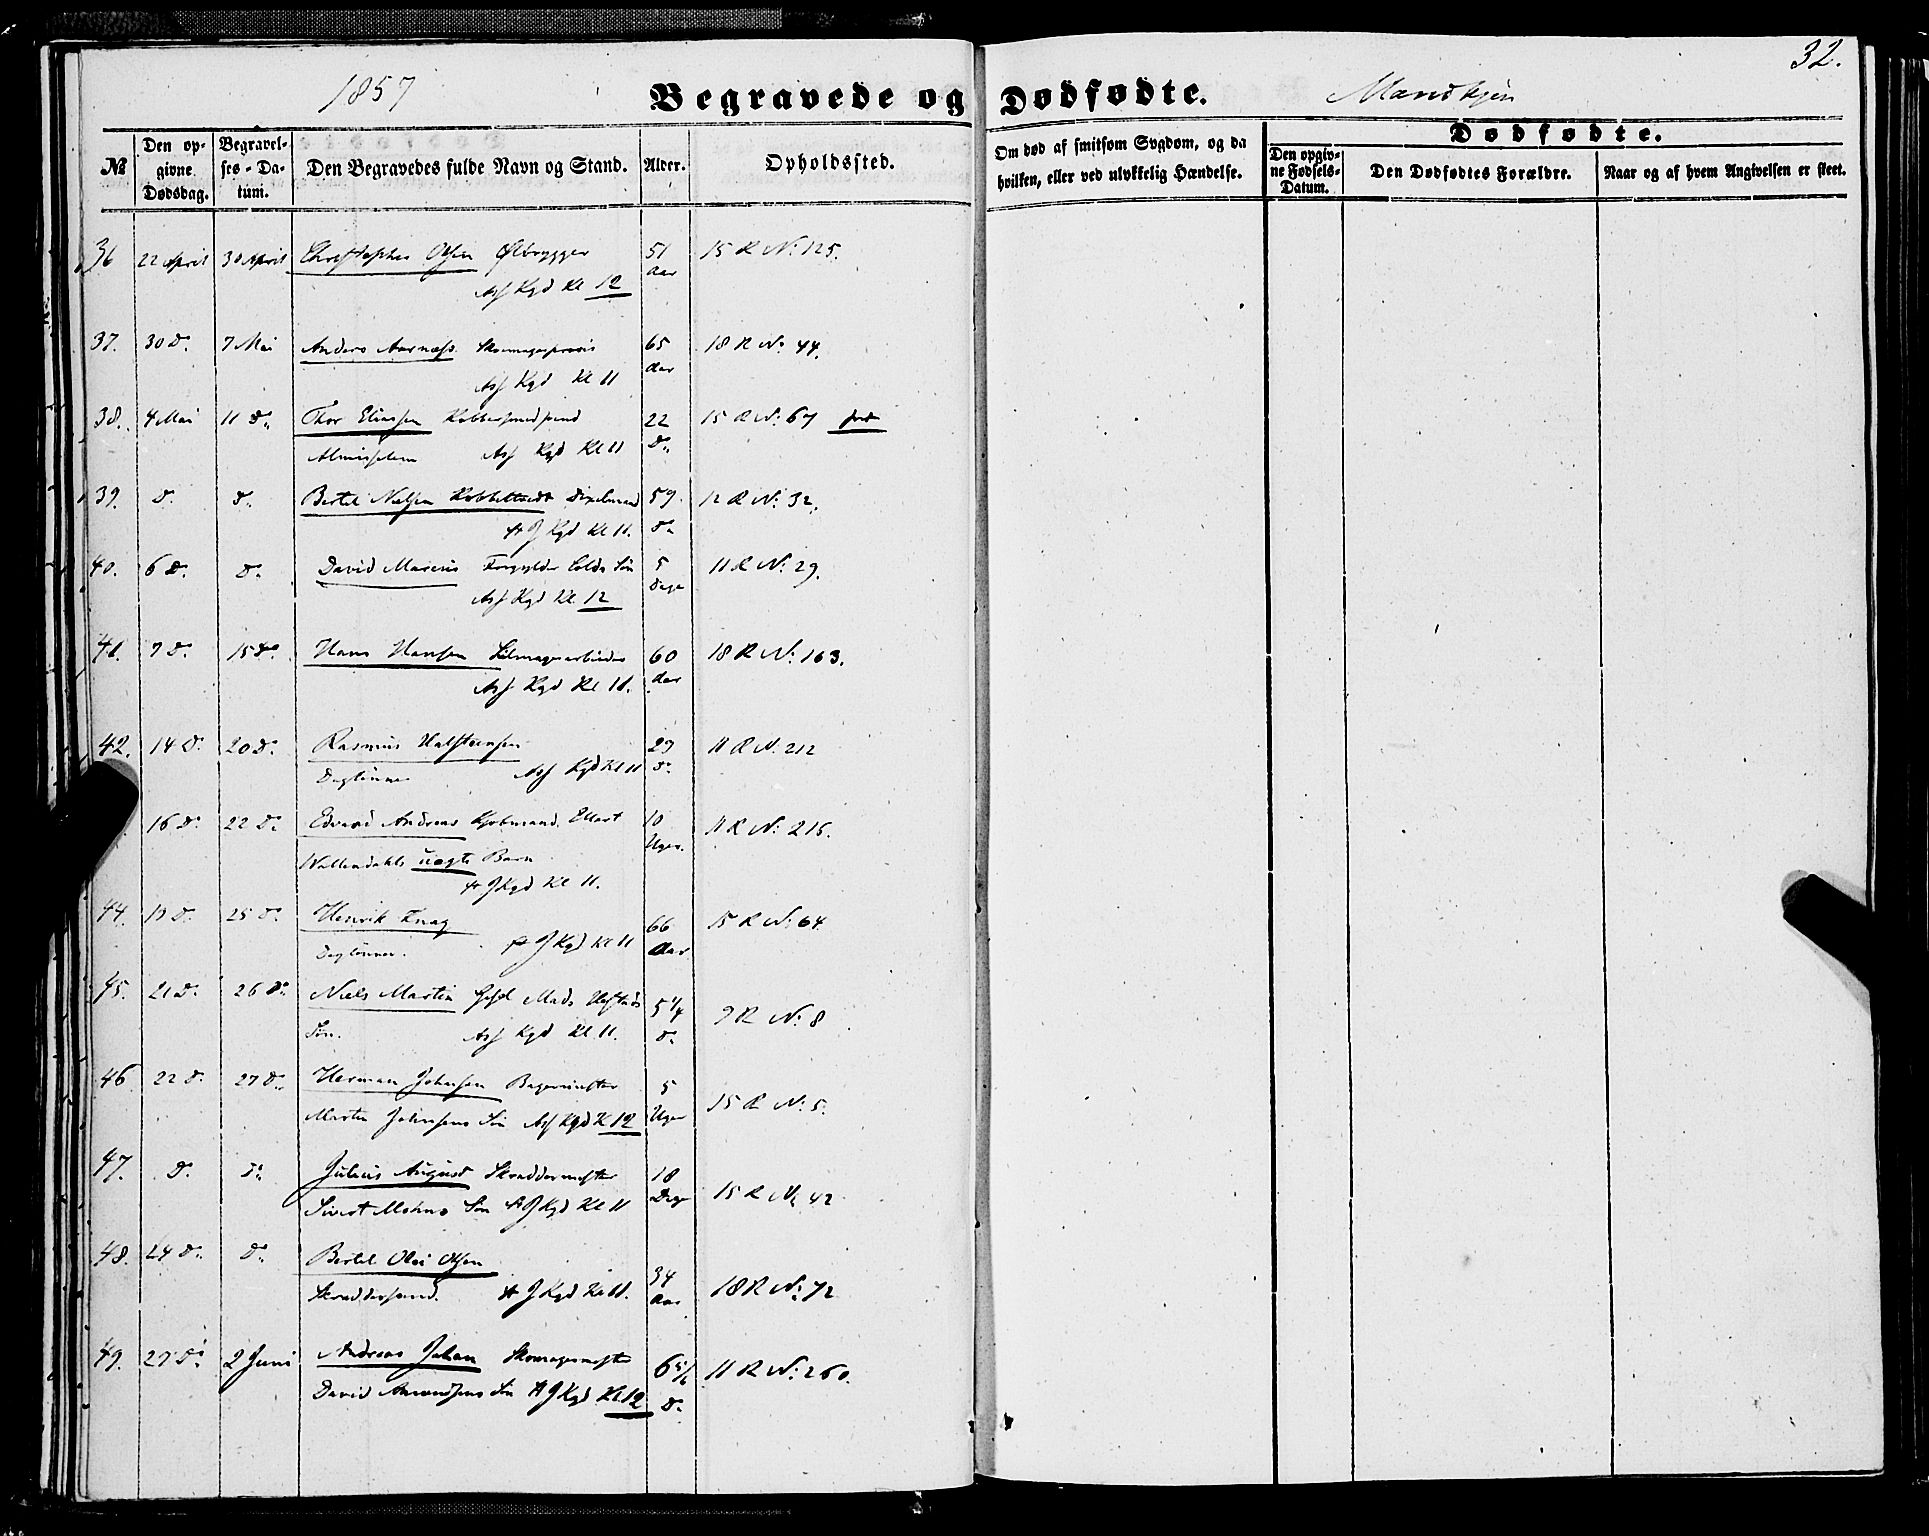 1857 Begravede og Dødfødte. Mandkjøn 32.
№ Den opgivne Dødsdag. Begravelses-Datum. Den Begravedes fulde Navn og Stand. Alder. Opholdssted. Om død af smitsom Sygdom, og da hvilken, eller ved ulykkelig Hændelse. Dødfødte.
Den opgivne Fødsels-Datum. Den Dødfødtes Forældre. Naar og af hvem Angivelsen er skeet.
36 22 April 30 April Christopher Olsen Ølbrygger 51 15 R N: 125.
Asf Kgd Kl 12 Aar
37. 30 D: 7 Mai Anders Aarnæss 65 18 R N: 44.
Asf Kgd Kl 11 Aar
38. 4 Mai 11 D: Thor Eliassen Kobbersmedsvend 22 15 R N: 67
Almisselem Asf Kgd Kl 11 D:
39. D: D: Bertel Nielsen 59 12 R N: 32.
St J Kgd Kl 11. D:
40. 6 D: D: David Marcus Forgylder Colds Søn 5 11 R N: 29.
Asf Kgd Kl 12 Dage
41. 7 D: 15 D: Hans Hansen 60 18 R N: 163.
Asf Kgd Kl 11. Aar
42. 14 D: 20 D: Rasmus Halfstensen 29 11 R N: 212
Daglønner Asf Kgd Kl 11 D:
16 D: 22 D: Edvard Andreas Kjøbmand Ellert 10 11 R N: 216.
Wallendahls uægte Barn Uger.
St J Kgd Kl 11.
44. 19 D: 25 D: Henrik Knag 66 15 R N: 64
Daglønner. St J Kgd Kl 11 Aar
45. 21 D: 26 D: Niels Martin Mads 5 1/4 9 R N: 8
Søn. Asf Kgd Kl 11. D:
46 22 D: 27 D: Herman Johnsen Bagermester 5 15 R N: 5.
Martin Johnsens Søn Asf Kgd Kl 12 Uger
47. D: D: Julius August Skræddermester 18 15 R N: 42
Sivert Mohns Søn St J Kgd Kl 11 Dage
48. 24 D: D: Bertel Olai Olsen 34 18 R N: 72
Skræddersvend. St J Kgd Kl 11. Aar
49. 27 D: 2 Juni Andreas Johan Skomagermester 6 5/6 11 R N: 260.
David Amundsens Søn St J Kgd Kl 12 D: